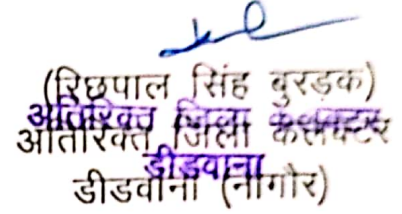 (रिछपाल सिंह बुरड़क)
अतिरिक्त जिला कलक्टर
अतिरिक्त जिला कलेक्टर
डीडवाना
डीडवाना (नागौर)